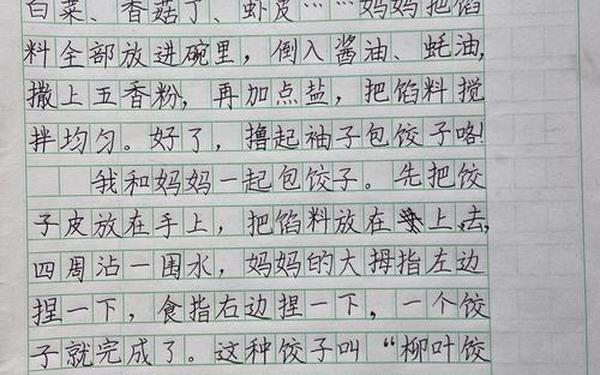 白菜、香菇丁、虾皮……妈妈把馅
料全部放进碗里，倒入酱油、蚝油，
撒上五香粉，再加点盐，把馅料搅
拌均匀。好了，撸起袖子包饺子咯！
我和妈妈一起包饺子。先把饺
子皮放在手上，把馅料放在上去，
四周沾一围水，妈妈的大拇指左边
捏一下，食指右边捏一下，一个饺
子就完成了。这种饺子叫“柳叶饺